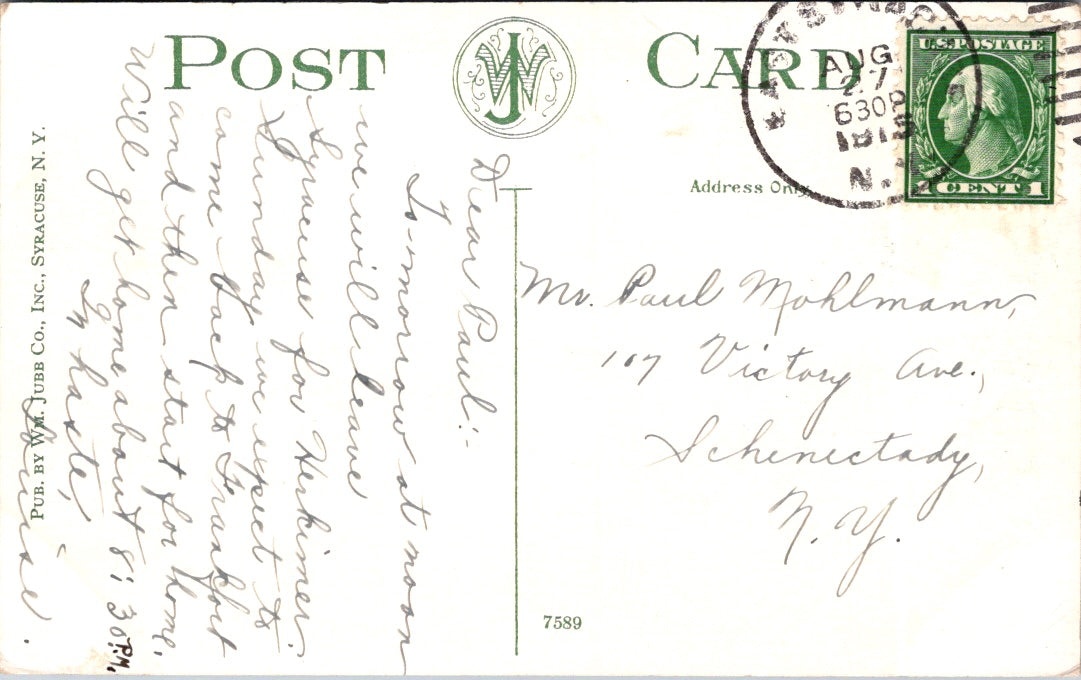 POST CARD
WJ
AUG
27
630P
1915
N.Y.
U.S. POSTAGE
1 CENT 1
Address Only
Dear Paul:-
To-morrow at noon
we will leave
Syracuse for Herkimer.
Sunday we expect to
come back to Frankfort
and then start for home.
Will get home about 8:30 P.M.
In haste,
Louise.
Mr. Paul Mohlmann,
107 Victory Ave.,
Schenectady,
N.Y.
PUB. BY WM. JUBB CO., INC., SYRACUSE, N. Y.
7589